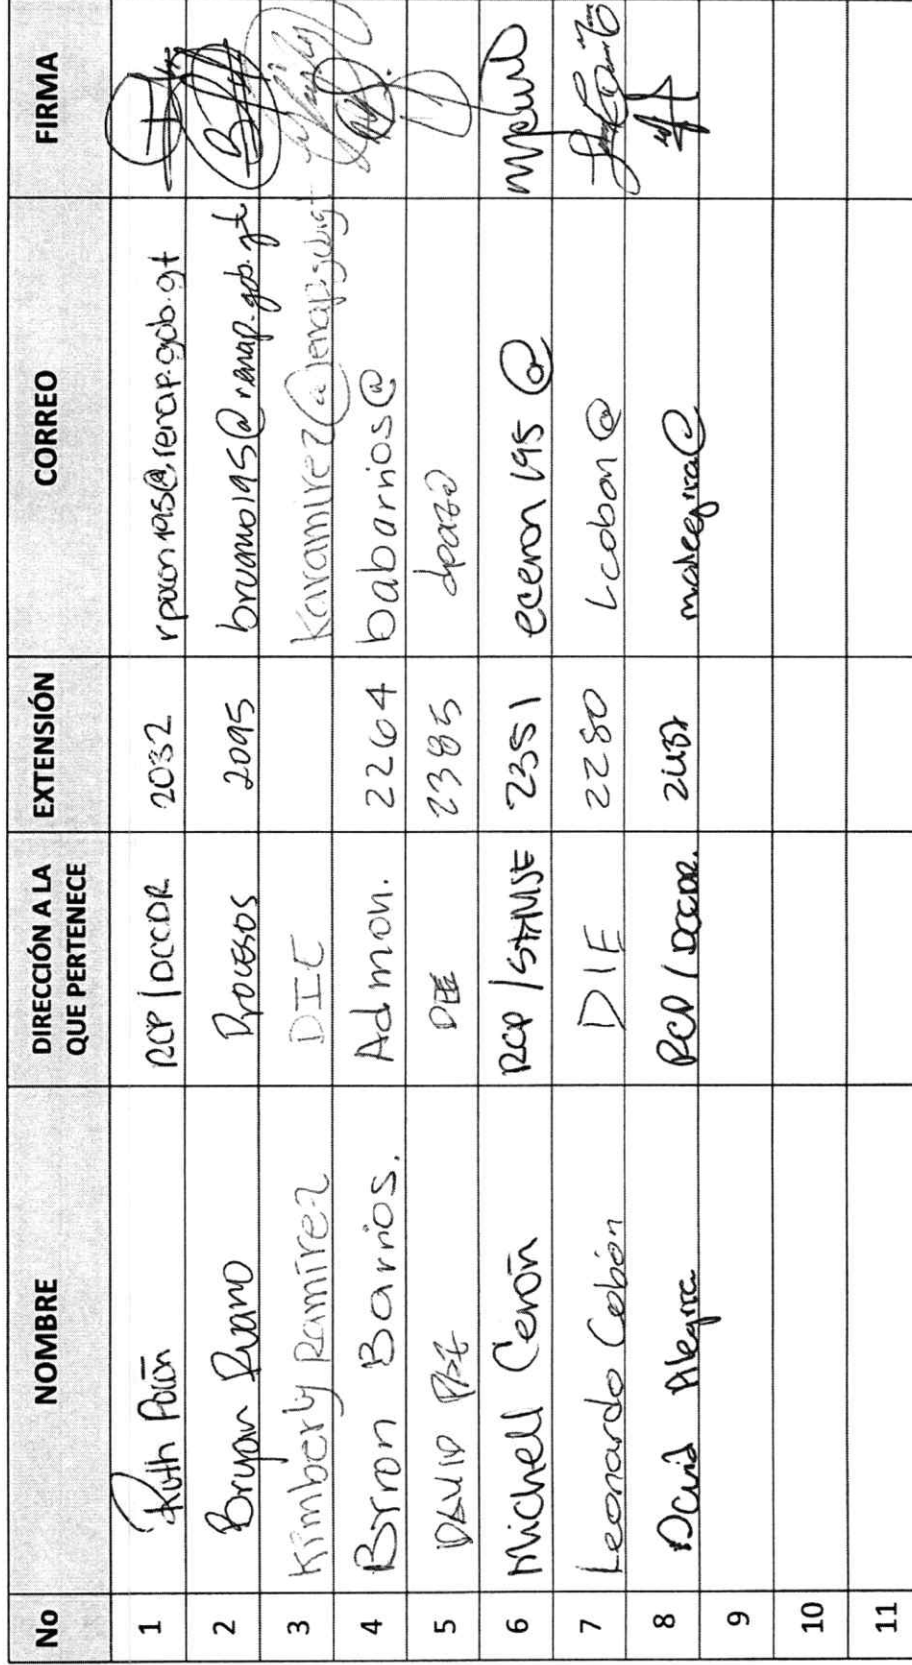 No NOMBRE DIRECCIÓN A LA QUE PERTENECE EXTENSIÓN CORREO FIRMA
1 Ruth RCP/DCCDR 2032 @renap.gob.gt
2 Bryan Ruano Procesos 2095 bruano195@renap.gob.gt
3 Kimberly Ramírez karamirez@renap.gob.gt
4 Byron Barrios. Admon. 2264 babarrios@
5 DAVID PAZ 2385 dpaz@
6 Michell Cerón RCP/ 2351 eceron195@
7 Leonardo Cobón DIE 2280 Lcobon@
8 David RCP/DCCDR.
9
10
11